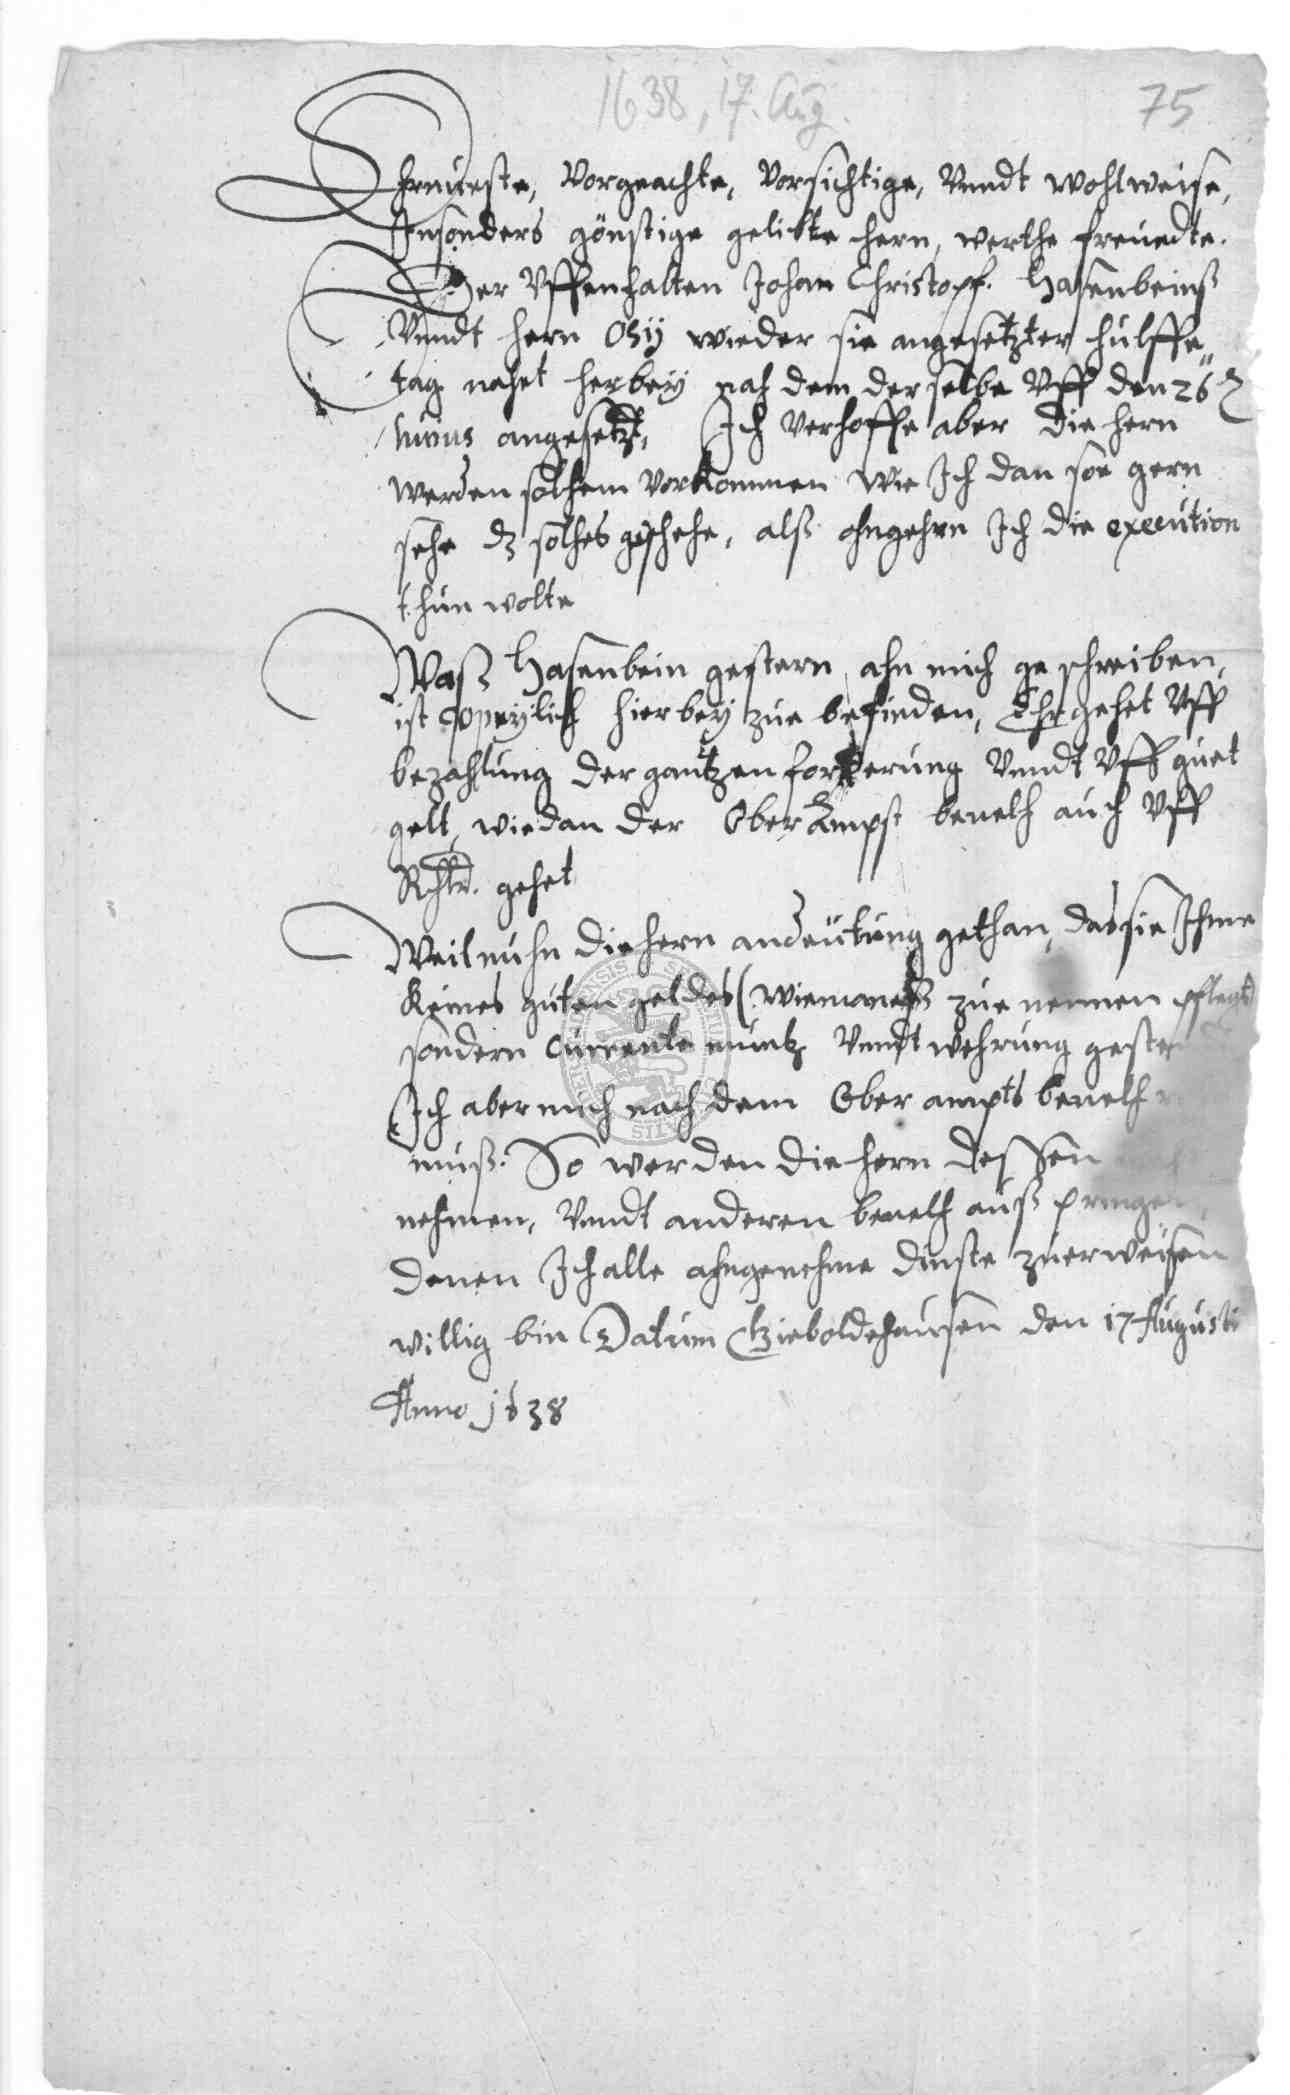 1638, 17. Aug.
75
Ehrnueste, Vorgeachte, Vorsichtige, Vnndt wohlweise,
Insonders gönstige geliebte hern, werthe freundte.
Der Vffenhalten Johan Christopf. Hasenbeinß
Vnndt hern Ohij wieder sie angesetzter hulffe"
tag nahet herbeÿ nach dem derselbe Vff den 26
huius angesetzt, Ich Verhoffe aber die hern
werden solchem Vorkommen wie Ich dan soe gern
sehe dz solches geschehe, alß ohngehrn Ich die execution
thun wolte
Waß Hasenbein gestern ahn mich geschreiben,
ist copeÿlich hierbeÿ zue befinden, Ehr gehet Vff
bezahlung der gantzen forderung Vnndt Vff guet
gelt, wie dan der Ober Ampst beuelh auch Vff
Rthlr. gehet
Weil nuhn die hern andeutung gethan, das sie Ihme
Keines guten geldes (wie manß zue nennen pflegt
sondern Currente muntz Vnndt wehrung gesten
Ich aber mich nach dem Ober ampts beuelh
muß. So werden die hern dessen
nehmen, Vnndt anderen beuelh auß pringen,
denen Ich alle ahngenehme dinste zuerweisen
willig bin Datum Gieboldehausen den 17 Augusti
Anno 1638